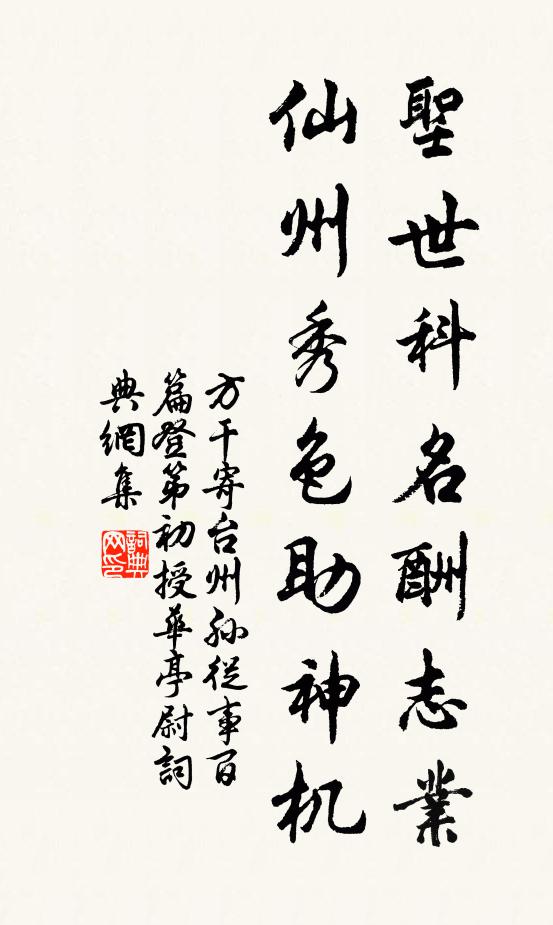 聖世科名酬志業
仙州秀色助神机
方干寄台州孫從事百
篇登第初授華亭尉詞
典網集
詞典
网印